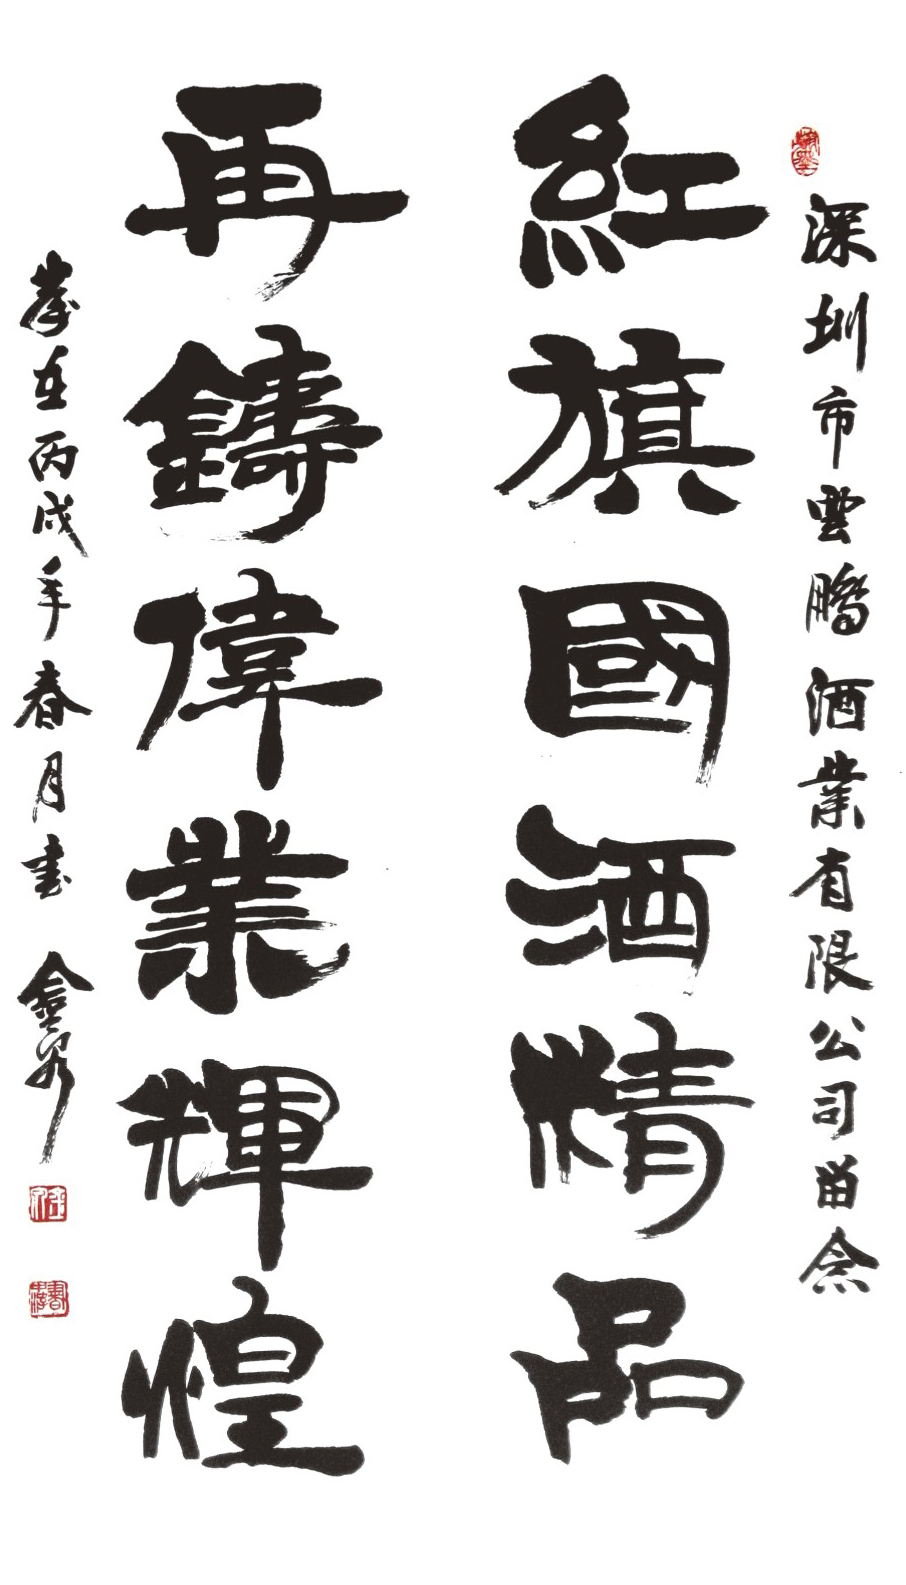 深圳市雲鵬酒業有限公司留念
紅旗國酒精品
再鑄偉業輝煌
歲在丙戌年春月書